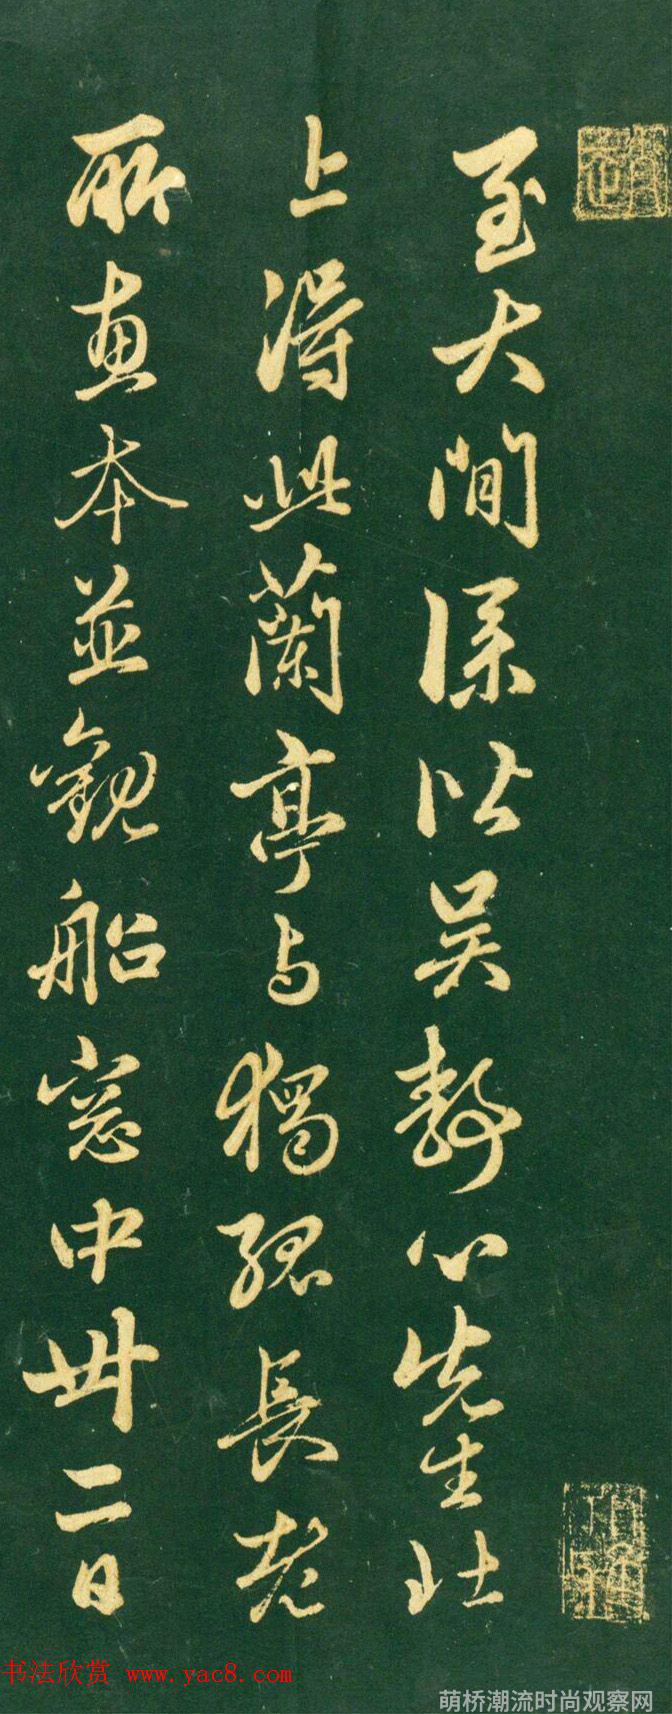 至大間偶從吳静心先生北
上得此蘭亭与獨孤長老
所惠本並觀船窓中卅二日
书法欣赏 www.yac8.com
萌桥潮流时尚观察网